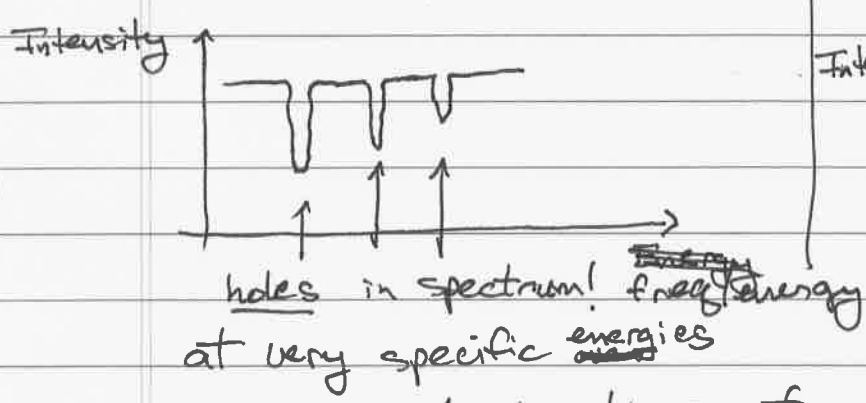 Intensity
Inte
holes in spectrum! freq/energy
at very specific energies